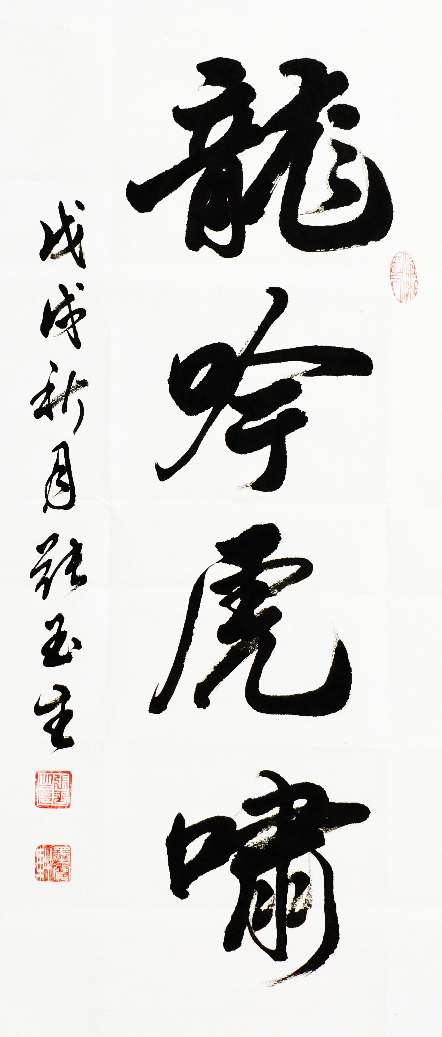 龍吟虎嘯
戊戌秋月張玉生